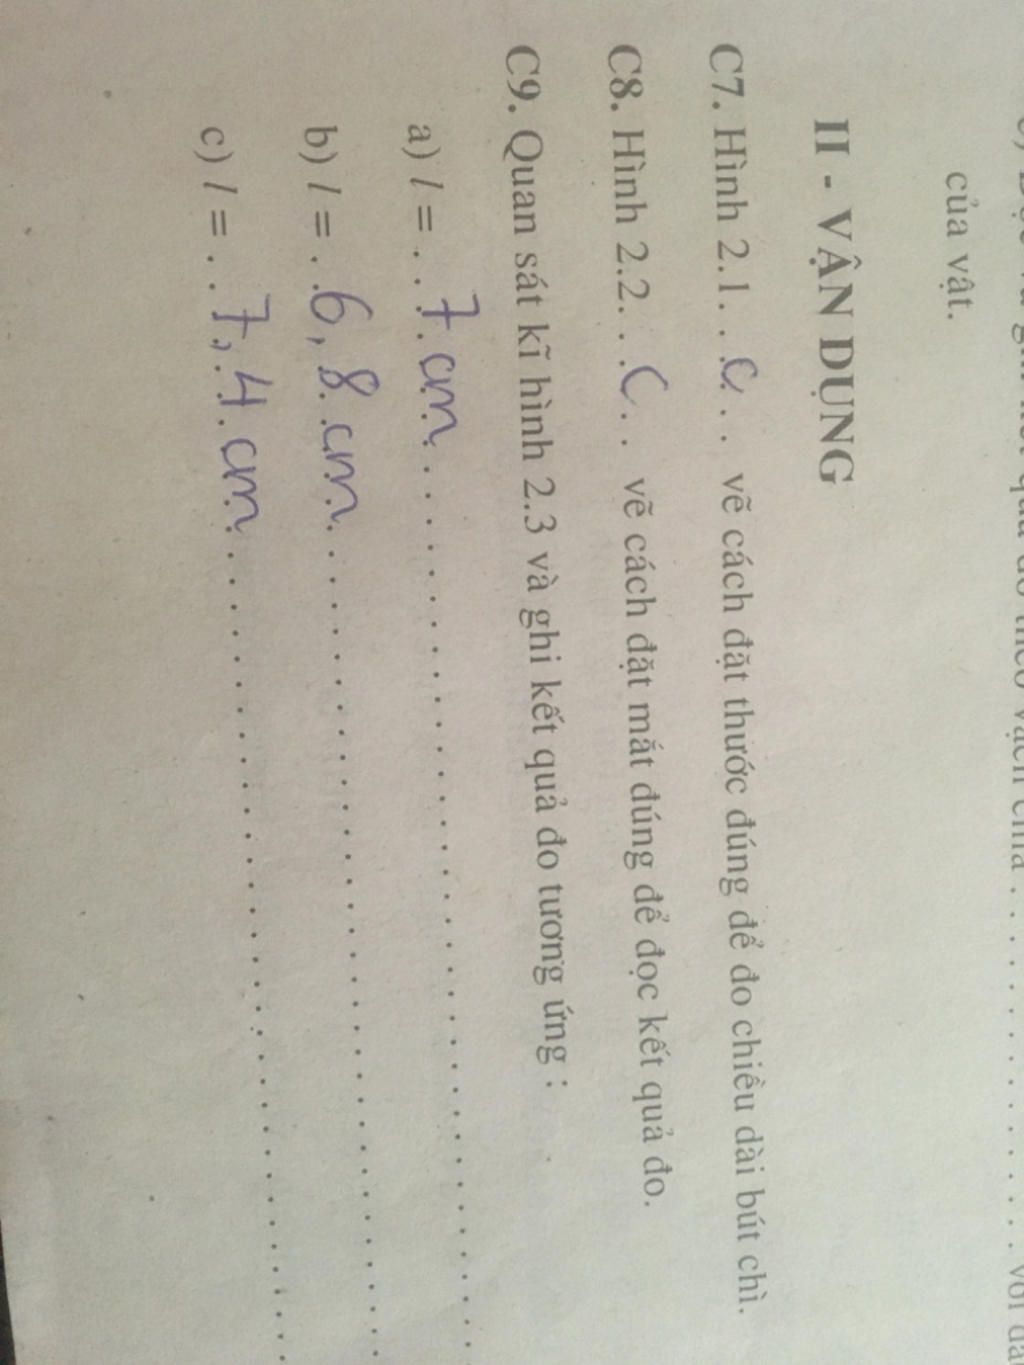 của vật.
II - VẬN DỤNG
C7. Hình 2.1. . .C. . . vẽ cách đặt thước đúng để đo chiều dài bút chì.
C8. Hình 2.2. . .C. . vẽ cách đặt mắt đúng để đọc kết quả đo.
C9. Quan sát kĩ hình 2.3 và ghi kết quả đo tương ứng :
a) l = . . 7 cm . . . . . . . . . . . . . . . . . . . .
b) l = . . 6,8 cm . . . . . . . . . . . . . . . . . . . .
c) l = . . 7,4 cm . . . . . . . . . . . . . . . . . . . .